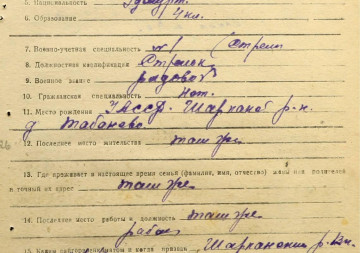 5. Национальность Удмурт.
6. Образование 4 кл.
7. Военно-учетная специальность №1 (Стрелк
8. Должностная квалификация Стрелок
9. Военное звание рядовой
10. Гражданская специальность нет.
11. Место рождения УАССР. Шарканск р-н.
д Табанево
12. Последнее место жительства там же
13. Где проживает в настоящее время семья (фамилия, имя, отчество) жены или родителей
и точный их адрес там же
14. Последнее место работы и должность там же
рабоч
15. Каким райгорвоенкоматом и когда призван Шарканским р. Вк.